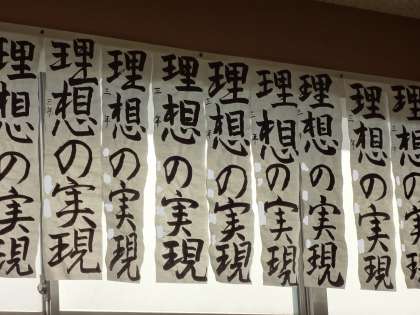 理想の実現
理想の実現
理想の実現
理想の実現
理想の実現
理想の実現
三年
理想の実現
三年
理想の実現
三年
理想の実現